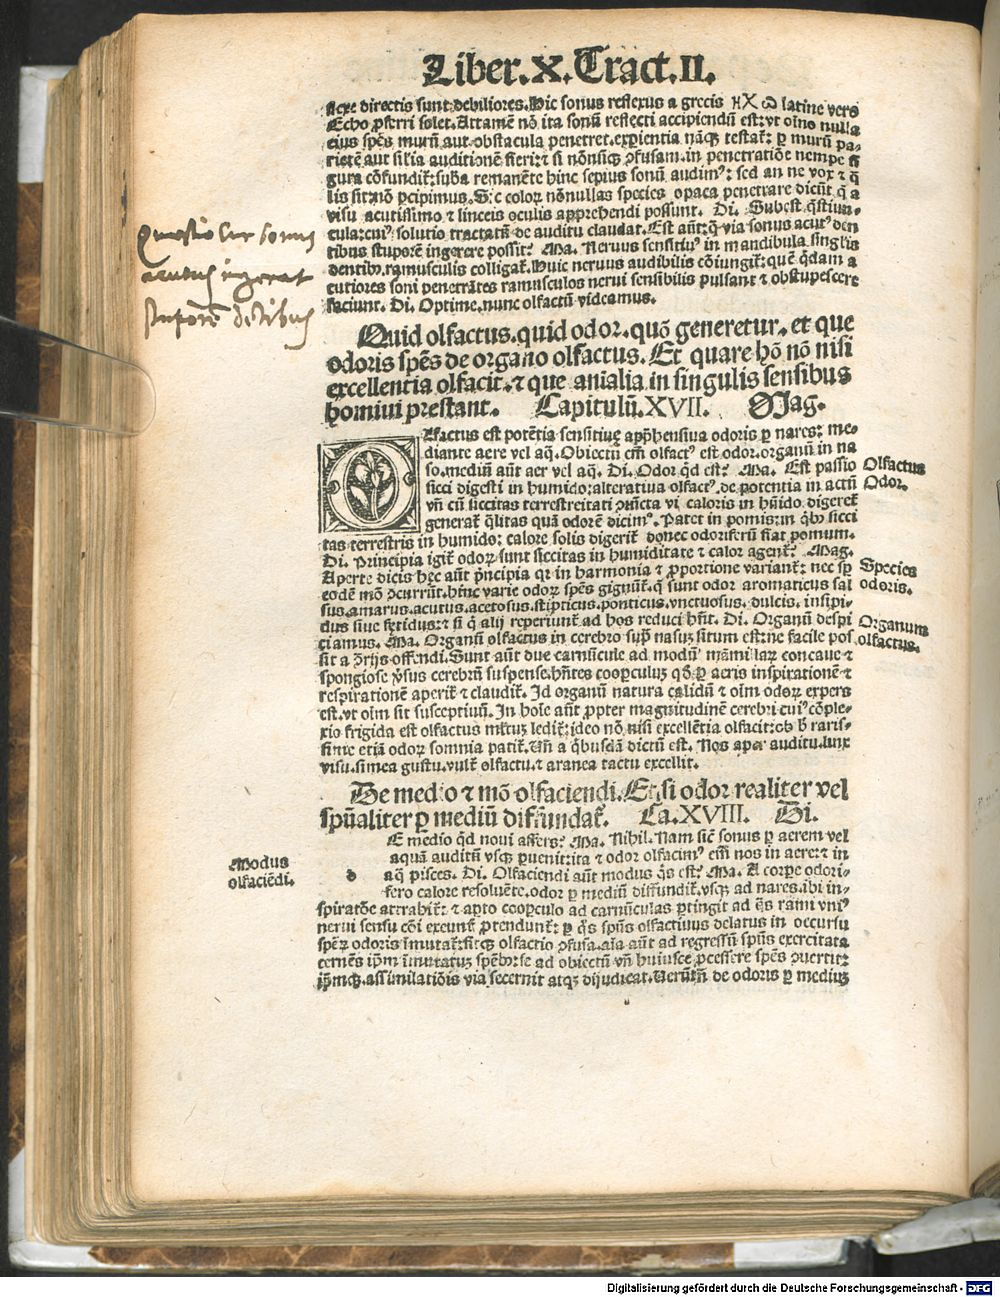 Liber.X.Tract.II.
directis sunt debiliores.Hic sonus reflexus a grecis ηχω latine vero
Echo solet.Attamē nō ita sonū reflecti accipiendū est:vt oīno nulla
eius spēs murū aut obstacula penetret.expientia testat: p murū pa-
rietē aut silia auditionē fieri:⁊ si . in penetratiōe nempe fi
gura cōfundit: remanēte hinc sepius sonū : sed an ne vox ⁊ q
lis sit:nō pcipimus.Sic nonnullas species opaca penetrare dicūt q a
visu acutissimo ⁊ linceis oculis apprehendi possunt. Di. Subest q̄stiun-
cula:cuiꝰ solutio tractatū de auditu claudat.Est aūt:q̄ via sonus acutꝰ den
tibus stuporē ingerere possit? Ma. Neruus sensitiuꝰ in mandibula singlis
dentibꝰ.ramusculis colligat.Huic neruus audibilis cōiungit:quē q̄dam a
cutiores soni penetrātes ramusculos nerui sensibilis pulsant ⁊ obstupescere
faciunt. Di. Optime.nunc olfactū videamus.
Questio Cur sonus
acutus ingerat
stuporē dētibus
Quid olfactus.quid odor.quō generetur.et que
odoris spēs de organo olfactus.Et quare hō nō nisi
excellentia olfacit.⁊ que aīalia in singulis sensibus
homini prestant. Capitulū.XVII. Mag.
Olfactus est potētia sensitiue apphensiua odoris p nares: me-
diante aere vel aq̄.Obiectū em̄ olfactꝰ est odor.organū in na
so.mediū aūt aer vel aq̄. Di. Odor qd est? Ma. Est passio
sicci digesti in humido:alteratiua olfactꝰ.de potentia in actū
vn̄ cū siccitas terrestreitati vi caloris in hūido digeret
generat q̄litas quā odorē dicimꝰ.Patet in pomis:in qbꝰ sicci
tas terrestris in humido: calore solis digerit donec odoriferū fiat pomum.
Di. Principia igit odorꝝ sunt siccitas in humiditate ⁊ calor agens? Mag.
Aperte dicis hec aūt pncipia qr in harmonia ⁊ pportione variant: nec sp
eodē mō .hinc varie odorꝝ spēs gignūt.q̄ sunt odor aromaticus sal
sus.amarus.acutus.acetosus.stipticus.ponticus.vnctuosus.dulcis.insipi-
dus siue fetidus:⁊ si q̄ alij reperiunt ad hos reduci hn̄t. Di. Organū
ciamus. Ma. Organū olfactus in cerebro supra nasum situm est:ne facile pos
sit a offendi.Sunt aūt due carnūcule ad modū concaue ⁊
spongiose cerebrū suspense.hn̄tes qd p aeris inspirationē ⁊
respirationē aperit ⁊ claudit. Id organū natura calidū ⁊ oīm odorꝝ expers
est.vt oīm sit susceptiuū.In hoīe aūt propter magnitudinē cerebri cuiꝰ cōple-
xio frigida est olfactus ledit:ideo nō nisi excellētia olfacit:ob h raris-
sime etiā odorꝝ somnia patit.Vn̄ a qbusdā dictū est. Nos aper auditu.lynx
visu.simea gustu.vult olfactu.⁊ aranea tactu excellit.
Olfactus
Odor.
Species
odoris.
Organum
olfactus.
De medio ⁊ mō olfaciendi.Et si odor realiter vel
spūaliter p mediū diffundat. Ca.XVIII. Di.
De medio qd noui affers? Ma. Nihil.Nam sic sonus p aerem vel
aquā auditū vsqꝫ puenit:ita ⁊ odor olfacimꝰ em̄ nos in aere:⁊ in
aq̄ pisces. Di. Olfaciendi aūt modus qs est? Ma. A corpe odori-
fero calore resoluēte.odor p mediū diffundit.vsqꝫ ad nares.ibi in-
spiratōe attrahit: ⁊ apto cooperculo ad carnūculas ptingit ad qs rami vniꝰ
nerui sensu cōi exeunt protendunt: p qs spūs olfactiuus delatus in occursu
odoris īmutat:sicqꝫ olfactio .aīa aūt ad regressū spūs exercitata
cernēs ipm īmutatū ad obiectū vn̄ huiusce pcessere spēs :
ipmqꝫ.assimilatiōis via secernit atqꝫ dijudicat. de odoris p mediū
Modus
olfaciēdi.
Digitalisierung gefördert durch die Deutsche Forschungsgemeinschaft - DFG